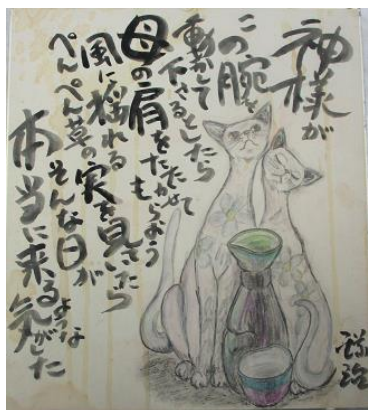 神様が
この腕を
動かして
下さるとしたら
母の肩をたたかせて
もらおう
風に揺れる
ぺんぺん草の実を見ていたら
そんな日が
本当に来るような気がした